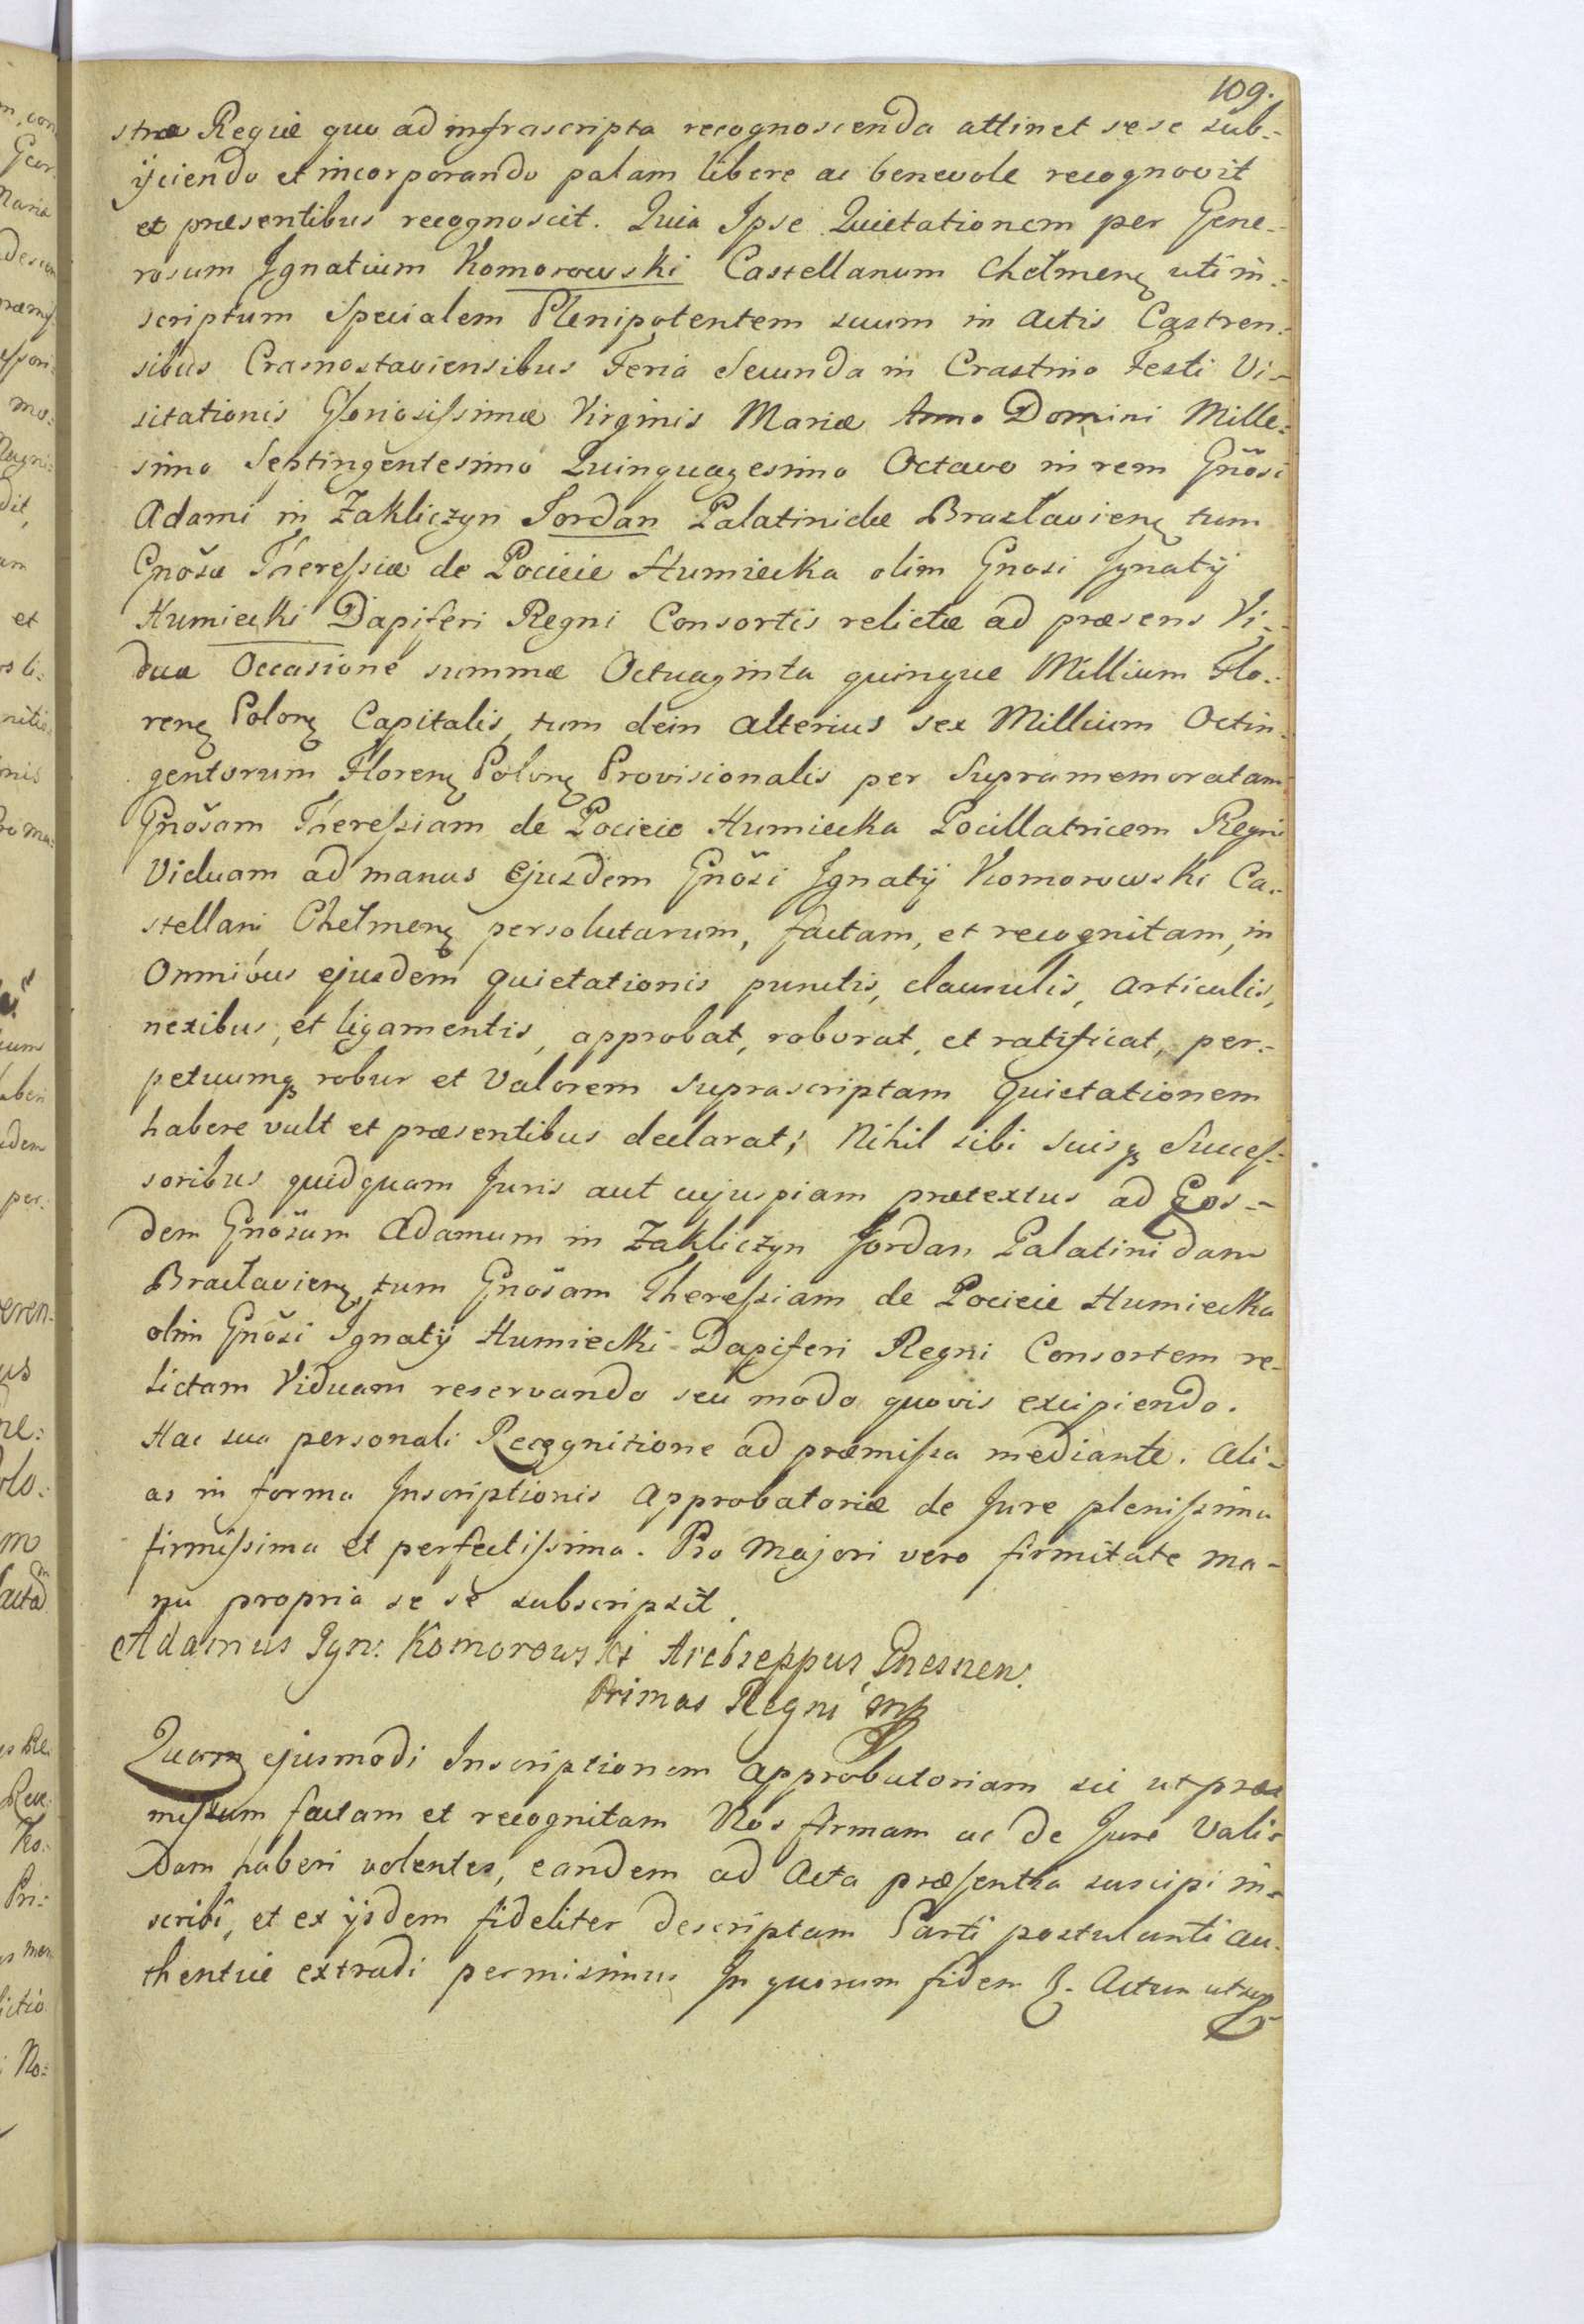 109.
stræ Regiæ quo ad infrascripta recognoscenda attinet sese sub-
ijciendo et incorporando palam libere ac benevole recognovit
et præsentibus recognoscit. Quia Ipse Quietationem per Gene-
rosum Ignatium Komorowski Castellanum Chełmenß uti in-
scriptum Specialem Plenipotentem suum in Actis Castren-
sibus Crasnostaviensibus Feria Secunda in Crastino Festi Vi-
sitationis Gloriosissimæ Virginis Mariæ Anno Domini Mille-
simo Septingentesimo Quinquagesimo Octavo in rem Gnosi
Adami in Zakliczyn Jordan Palatinidæ Bracławienß tum
Gnosæ Theressiæ de Pocieie Humiecka olim Gnosi Ignatij
Humiecki Dapiferi Regni Consortis relictæ ad præsens Vi-
duæ Occasione summæ Octuaginta quinque Millium Flo-
renß Polonß Capitalis, tum dein alterius sex Millium Octin-
gentorum Florenß Polonß Provisionalis per Supramemoratam
Gnosam Theressiam de Pocieie Humiecka Pocillatricem Regni
Viduam ad manus ejusdem Gnosi Ignatij Komorowski Ca-
stellani Chełmenß persolutarum, factam, et recognitam, in
Omnibus ejusdem quietationis punctis, clausulis, articulis,
nexibus, et ligamentis, approbat, roborat, et ratificat, per-
petuumqß robur et Valorem Suprascriptam Quietationem
habere vult et præsentibus declarat; Nihil sibi Suisqß Succes-
soribus quidquam Juris aut cujuspiam prætextus ad Eos-
dem Gnosum Adamum in Zakliczyn Jordan Palatinidam
Bracławienß, tum Gnosam Theressiam de Pocieie Humiecka
olim Gnosi Ignatij Humiecki Dapiferi Regni Consortem re-
lictam Viduam reservando seu modo quovis excipiendo.
Hac sua personali Recognitione ad præmissa mediante. Ali-
as in forma Inscriptionis Approbatoriæ de Jure plenissima
firmissima et perfectissima. Pro Majori vero firmitate ma-
nu propria se se subscripsit.
Adamus Ign: Komorowski Archieppus Gnesnen:
Primas Regni mp
Quam ejusmodi Inscriptionem approbatoriam sic ut præ
missum factam et recognitam Nos firmam ac de Jure Vali-
dam haberi volentes, eandem ad Acta præsentia suscipi in-
scribi, et ex ijsdem fideliter descriptam Parti postulanti au-
thentice extradi permisimus In quorum fidem &. Actum ut sup